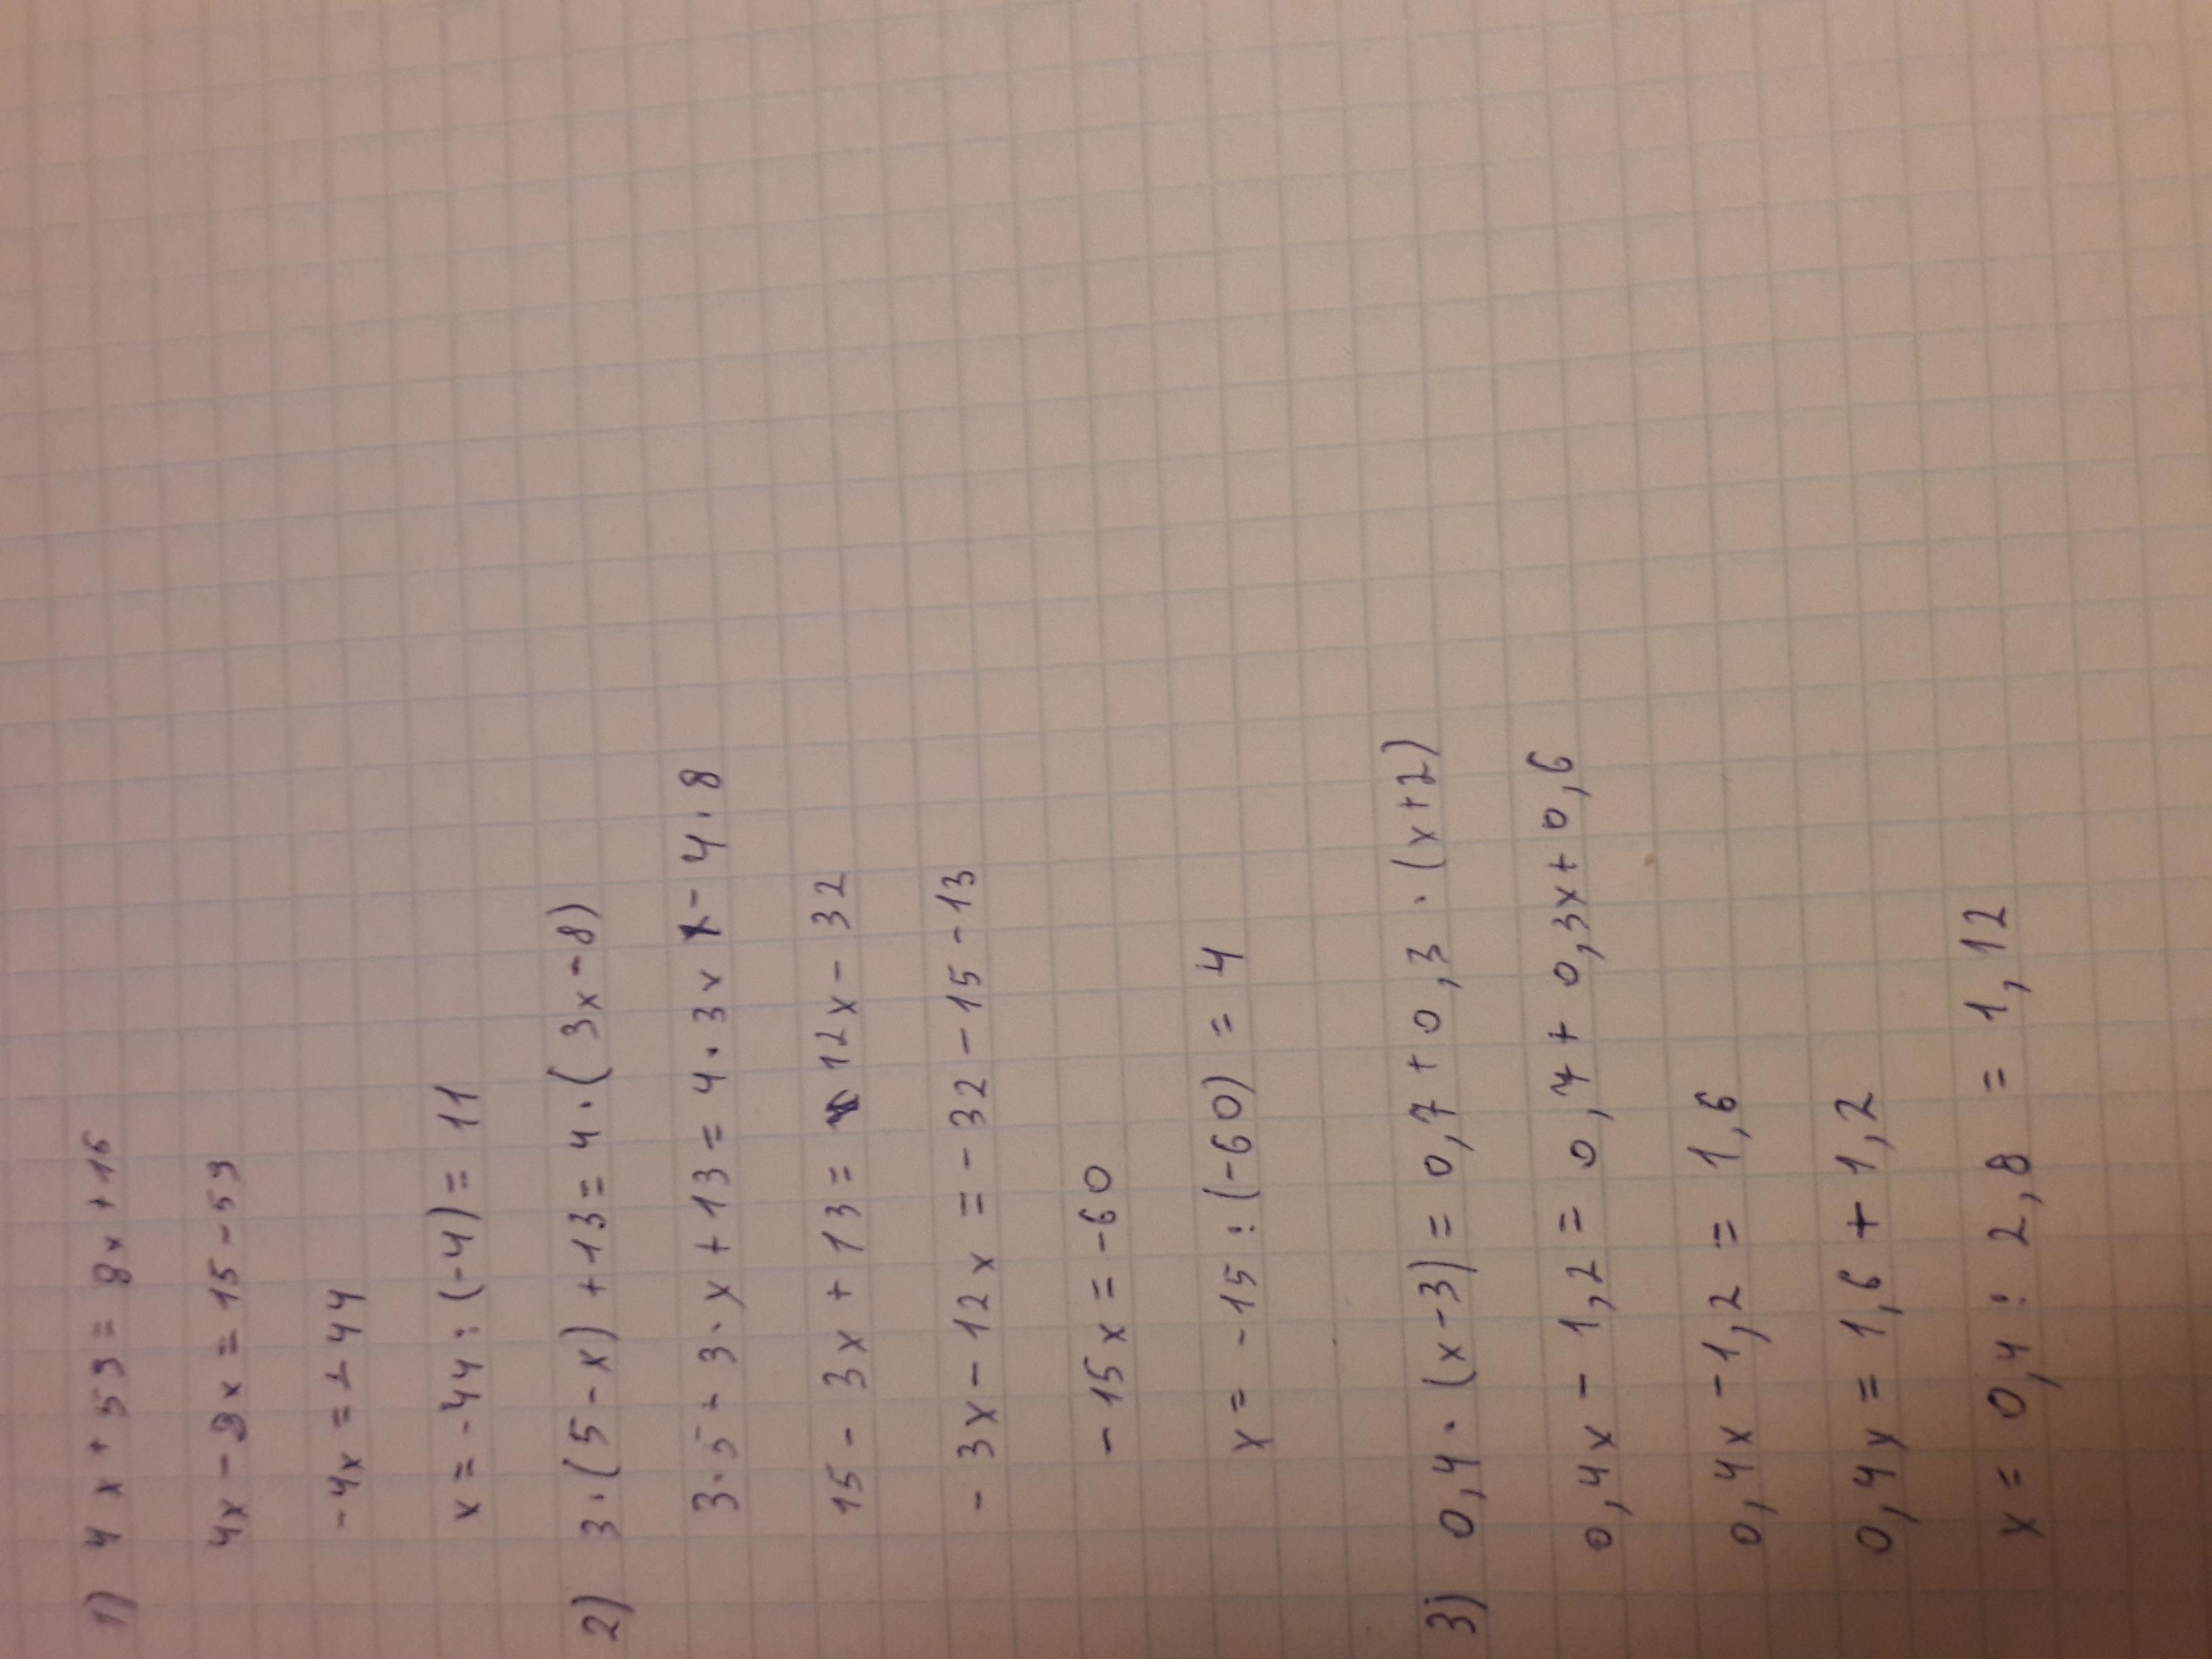 1) 4x + 59 = 8x + 15
4x - 8x = 15 - 59
-4x = -44
x = -44 : (-4) = 11
2) 3 · (5 - x) + 13 = 4 · (3x - 8)
3 · 5 - 3 · x + 13 = 4 · 3x - 4 · 8
15 - 3x + 13 = 12x - 32
- 3x - 12x = - 32 - 15 - 13
- 15x = -60
x = -15 : (-60) = 4
3) 0,4 · (x - 3) = 0,7 + 0,3 · (x + 2)
0,4x - 1,2 = 0,7 + 0,3x + 0,6
0,4x - 1,2 = 1,6
0,4x = 1,6 + 1,2
x = 0,4 : 2,8 = 1,12